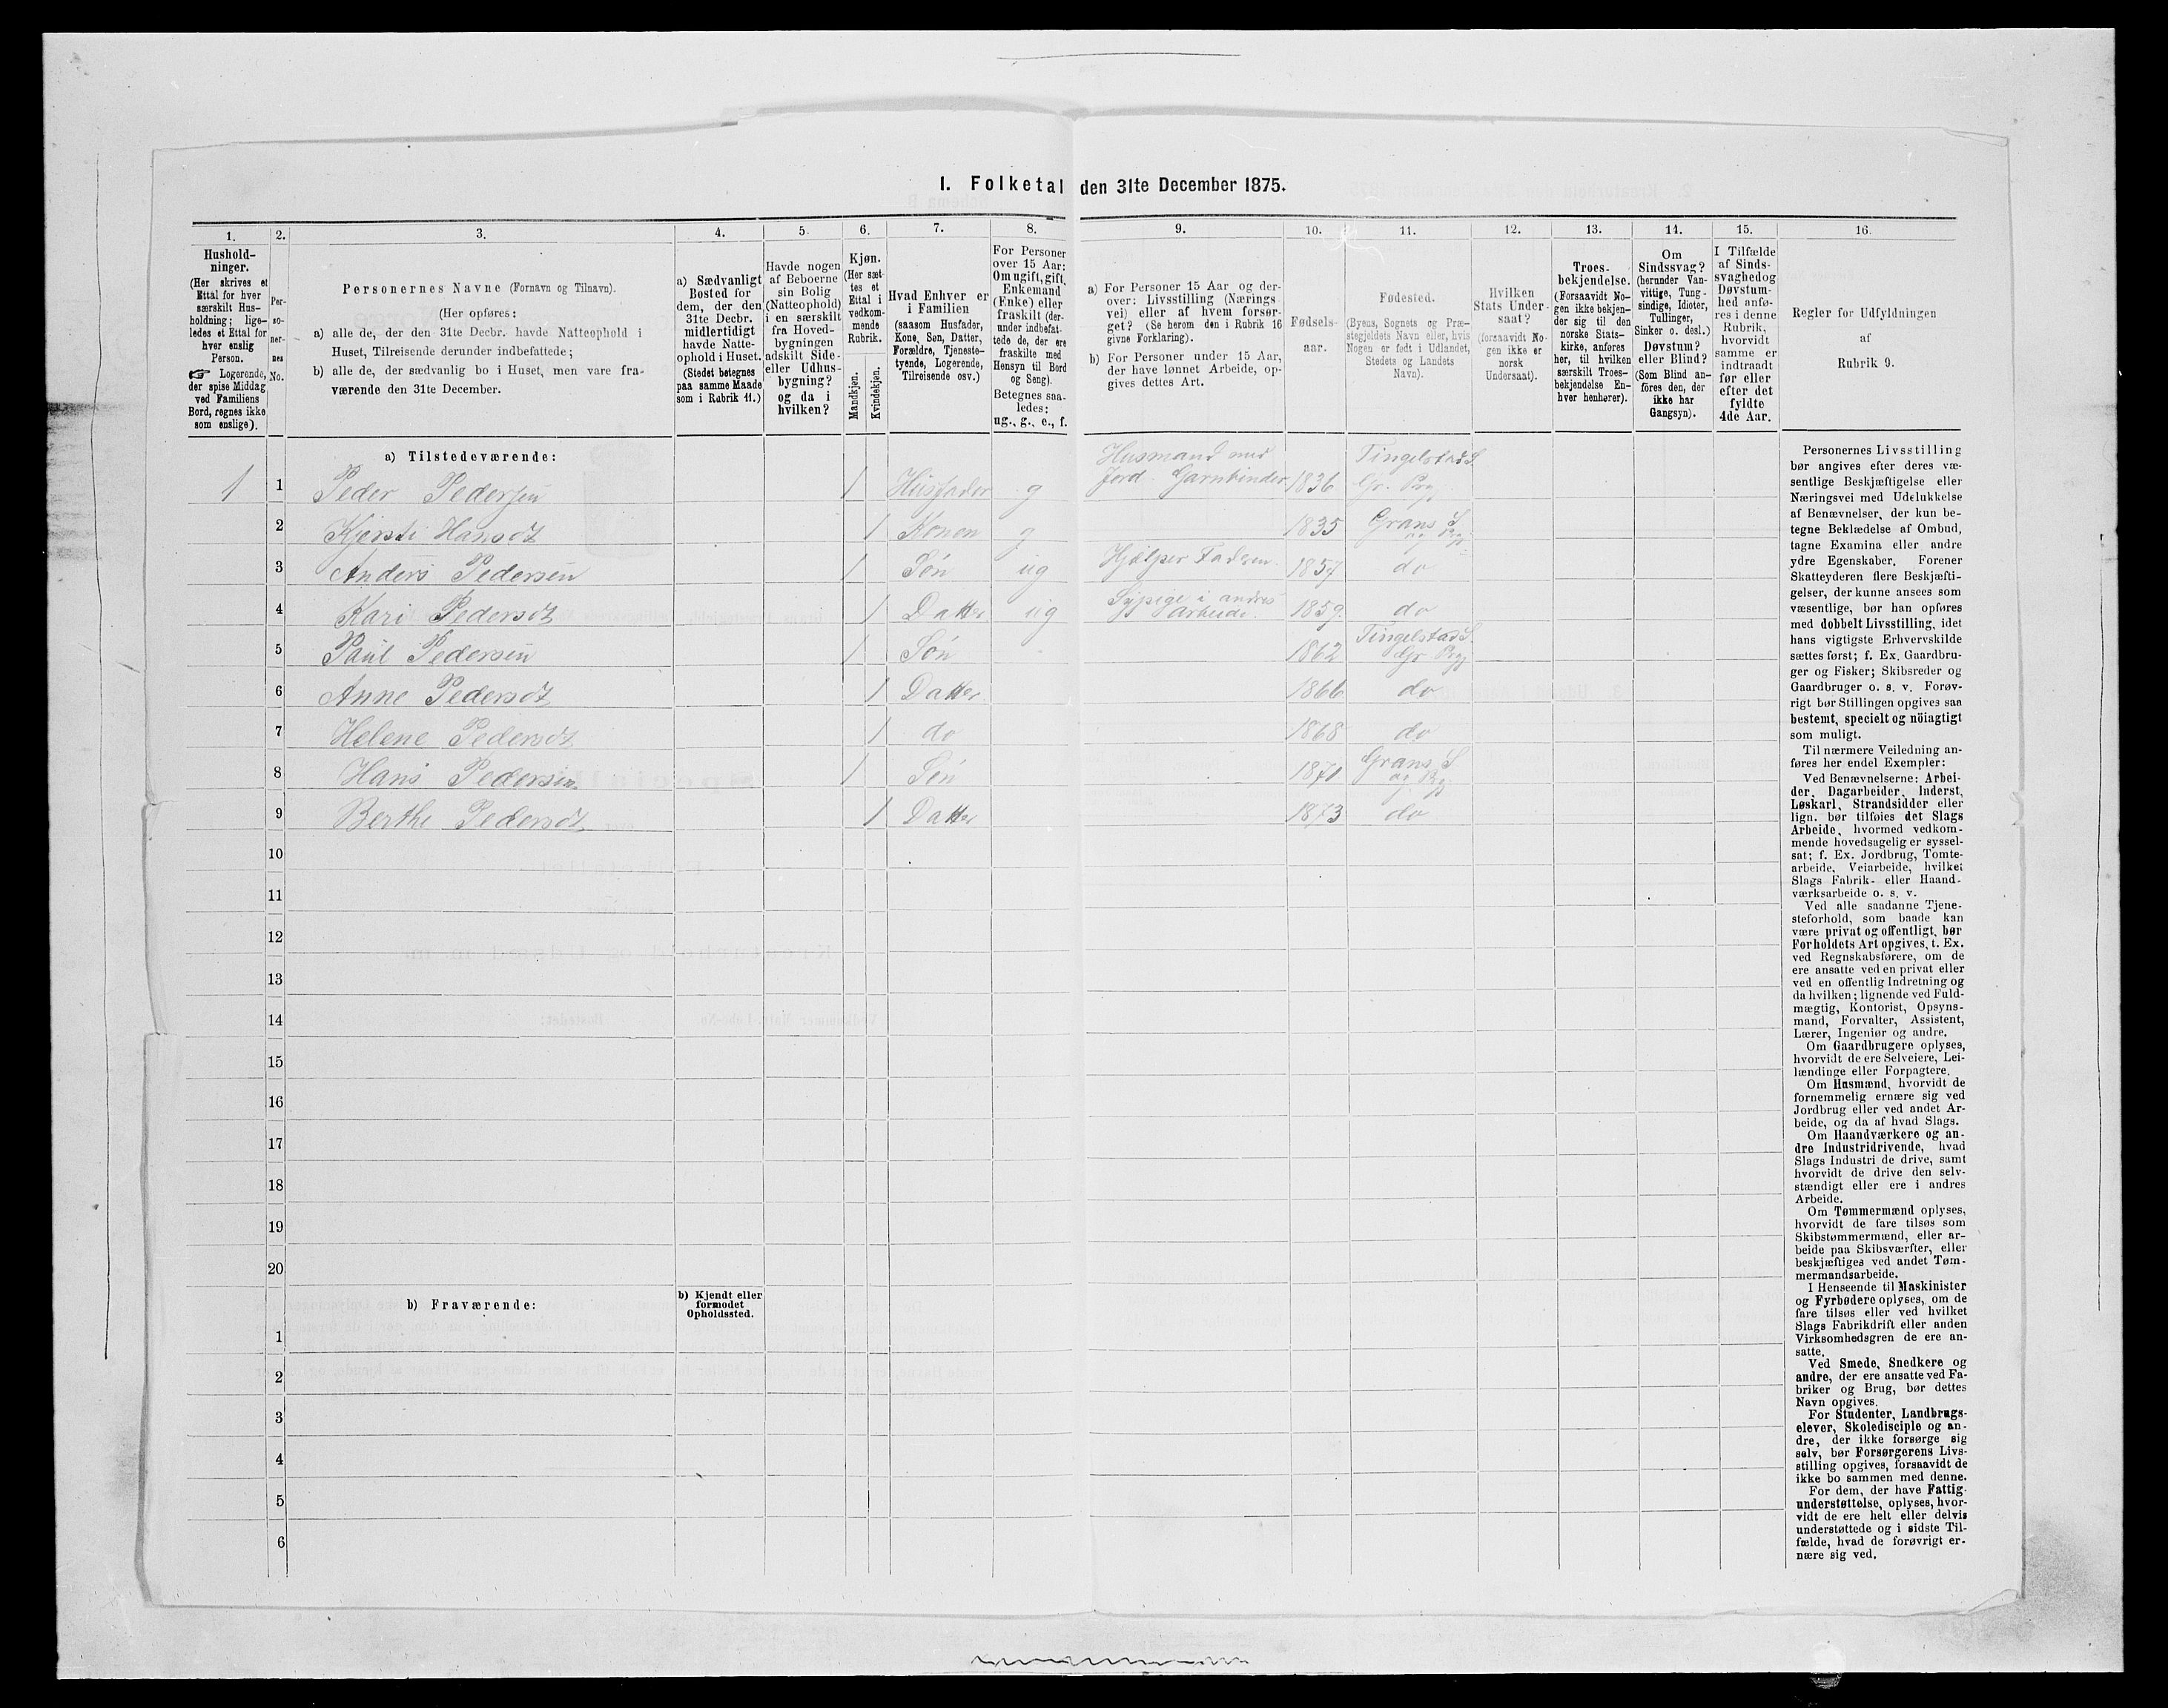 I. Folketal den 31te December 1875.
1.
Hushold-
ninger.
(Her skrives et
Ettal for hver
særskilt Hus-
holdning; lige-
ledes et Ettal for
hver enslig
Person.
☞ Logerende,
der spise Middag
ved Familiens
Bord, regnes ikke
som enslige).
2.
Per-
so-
ner-
nes
No.
3.
Personernes Navne (Fornavn og Tilnavn).
(Her opføres:
a) alle de, der den 31te Decbr. havde Natteophold i
Huset, Tilreisende derunder indbefattede;
b) alle de, der sædvanlig bo i Huset, men vare fra-
værende den 31te December.
4.
a) Sædvanligt
Bosted for
dem, der den
31te Decbr.
midlertidigt
havde Natte-
ophold i Huset.
(Stedet betegnes
paa samme Maade
som i Rubrik 11.)
5.
Havde nogen
af Beboerne
sin Bolig
(Natteophold)
i en særskilt
fra Hoved-
bygningen
adskilt Side-
eller Udhus-
bygning?
og da i
hvilken?
6.
Kjøn.
(Her sæt-
tes et
Ettal i
vedkom-
mende
Rubrik.
Mandkjøn.
Kvindekjøn.
7.
Hvad Enhver er
i Familien
(saasom Husfader,
Kone, Søn, Datter,
Forældre, Tjeneste-
tyende, Logerende,
Tilreisende osv.)
8.
For Personer
over 15 Aar:
Om ugift, gift,
Enkemand
(Enke) eller
fraskilt (der-
under indbefat-
tede de, der ere
fraskilte med
Hensyn til Bord
og Seng).
Betegnes saa-
ledes:
ug., g., e., f.
9.
a) For Personer 15 Aar og der-
over: Livsstilling (Nærings-
vei) eller af hvem forsør-
get? (Se herom den i Rubrik 16
givne Forklaring).
b) For Personer under 15 Aar,
der have lønnet Arbeide, op-
gives dettes Art.
10.
Fødsels-
aar.
11.
Fødested.
(Byens, Sognets og Præ-
stegjeldets Navn eller, hvis
Nogen er født i Udlandet,
Stedets og Landets
Navn).
12.
Hvilken
Stats Under-
saat?
(forsaavidt No-
gen ikke er
norsk
Undersaat).
13.
Troes-
bekjendelse.
(Forsaavidt No-
gen ikke bekjen-
der sig til den
norske Stats-
kirke, anføres
her, til hvilken
særskilt Troes-
bekjendelse En-
hver henhører).
14.
Om
Sindssvag?
(herunder Van-
vittige, Tung-
sindige, Idioter,
Tullinger,
Sinker o. desl.)
Døvstum?
eller Blind?
(Som Blind an-
föres den, der
ikke har
Gangsyn).
15.
I Tilfælde
af Sinds-
svaghed og
Døvstum-
hed anfø-
res i denne
Rubrik,
hvorvidt
samme er
indtraadt
før eller
efter det
fyldte
4de Aar.
16.
Regler for Udfyldningen
af
Rubrik 9.
a) Tilstedeværende:
Husmand med Tingelstad S.
1 1 Peder Pedersen 1 Husfader g Jord. Garnbinder 1836 Gr. Prgj
2 Kjersti Hansdt 1 Konen g 1835 Grans S og Prgj
3 Anders Pedersen 1 Søn ug Hjælper Faderen 1857 do
4 Kari Pedersdt 1 Datter ug Sypige i andres Arbeide. 1859 do
5 Paul Pedersen 1 Søn 1862 Tingelstad S. Gr. Prgj
6 Anne Pedersdt 1 Datter 1866 do
7 Helene Pedersdt 1 do 1868 do
8 Hans Pedersen 1 Søn 1871 Grans S og Prgj
9 Berthe Pedersdt 1 Datter 1873 do
10
11
12
13
14
15
16
17
18
19
20
b) Fraværende:
b) Kjendt eller
formodet
Opholdssted.
1
2
3
4
5
6
Personernes Livsstilling
bør angives efter deres væ-
sentlige Beskjæftigelse eller
Næringsvei med Udelukkelse
af Benævnelser, der kun be-
tegne Beklædelse af Ombud,
tagne Examina eller andre
ydre Egenskaber. Forener
Skatteyderen flere Beskjæfti-
gelser, der kunne ansees som
væsentlige, bør han opføres
med dobbelt Livsstilling, idet
hans vigtigste Erhvervskilde
sættes først; f. Ex. Gaardbru-
ger og Fisker; Skibsreder og
Gaardbruger o. s. v. Forøv-
rigt bør Stillingen opgives saa
bestemt, specielt og nöiagtigt
som muligt.
Til nærmere Veiledning an-
føres her endel Exempler:
Ved Benævnelserne: Arbei-
der, Dagarbeider, Inderst,
Løskarl, Strandsidder eller
lign. bør tilføies det Slags
Arbeide, hvormed vedkom-
mende hovedsagelig er syssel-
sat; f. Ex. Jordbrug, Tomte-
arbeide, Veiarbeide, hvilket
Slags Fabrik- eller Haand-
værksarbeide o. s. v.
Ved alle saadanne Tjene-
steforhold, som baade kan
være privat og offentligt, bør
Forholdets Art opgives, t. Ex.
ved Regnskabsførere, om de
ere ansatte ved en privat eller
ved en offentlig Indretning og
da hvilken; lignende ved Fuld-
mægtig, Kontorist, Opsyns-
mand, Forvalter, Assistent,
Lærer, Ingeniør og andre.
Om Gaardbrugere oplyses,
hvorvidt de ere Selveiere, Lei-
lændinge eller Forpagtere.
Om Husmænd, hvorvidt de
fornemmelig ernære sig ved
Jordbrug eller ved andet Ar-
beide, og da af hvad Slags.
Om Haandværkere og an-
dre Industridrivende, hvad
Slags Industri de drive, samt
hvorvidt de drive den selv-
stændigt eller ere i andres
Arbeide.
Om Tømmermænd oplyses,
hvorvidt de fare tilsøs som
Skibstømmermænd, eller ar-
beide paa Skibsværfter, eller
beskjæftiges ved andet Tøm-
mermandsarbeide.
I Henseende til Maskinister
og Fyrbødere oplyses, om de
fare tilsøs eller ved hvilket
Slags Fabrikdrift eller anden
Virksomhedsgren de ere an-
satte.
Ved Smede, Snedkere og
andre, der ere ansatte ved Fa-
briker og Brug, bør dettes
Navn opgives.
For Studenter, Landbrugs-
elever, Skoledisciple og an-
dre, der ikke forsørge sig
selv, bør Forsørgerens Livs-
stilling opgives, forsaavidt de
ikke bo sammen med denne.
For dem, der have Fattig-
understøttelse, oplyses, hvor-
vidt de ere helt eller delvis
understøttede og i sidste Til-
fælde, hvad de forøvrigt er-
nære sig ved.